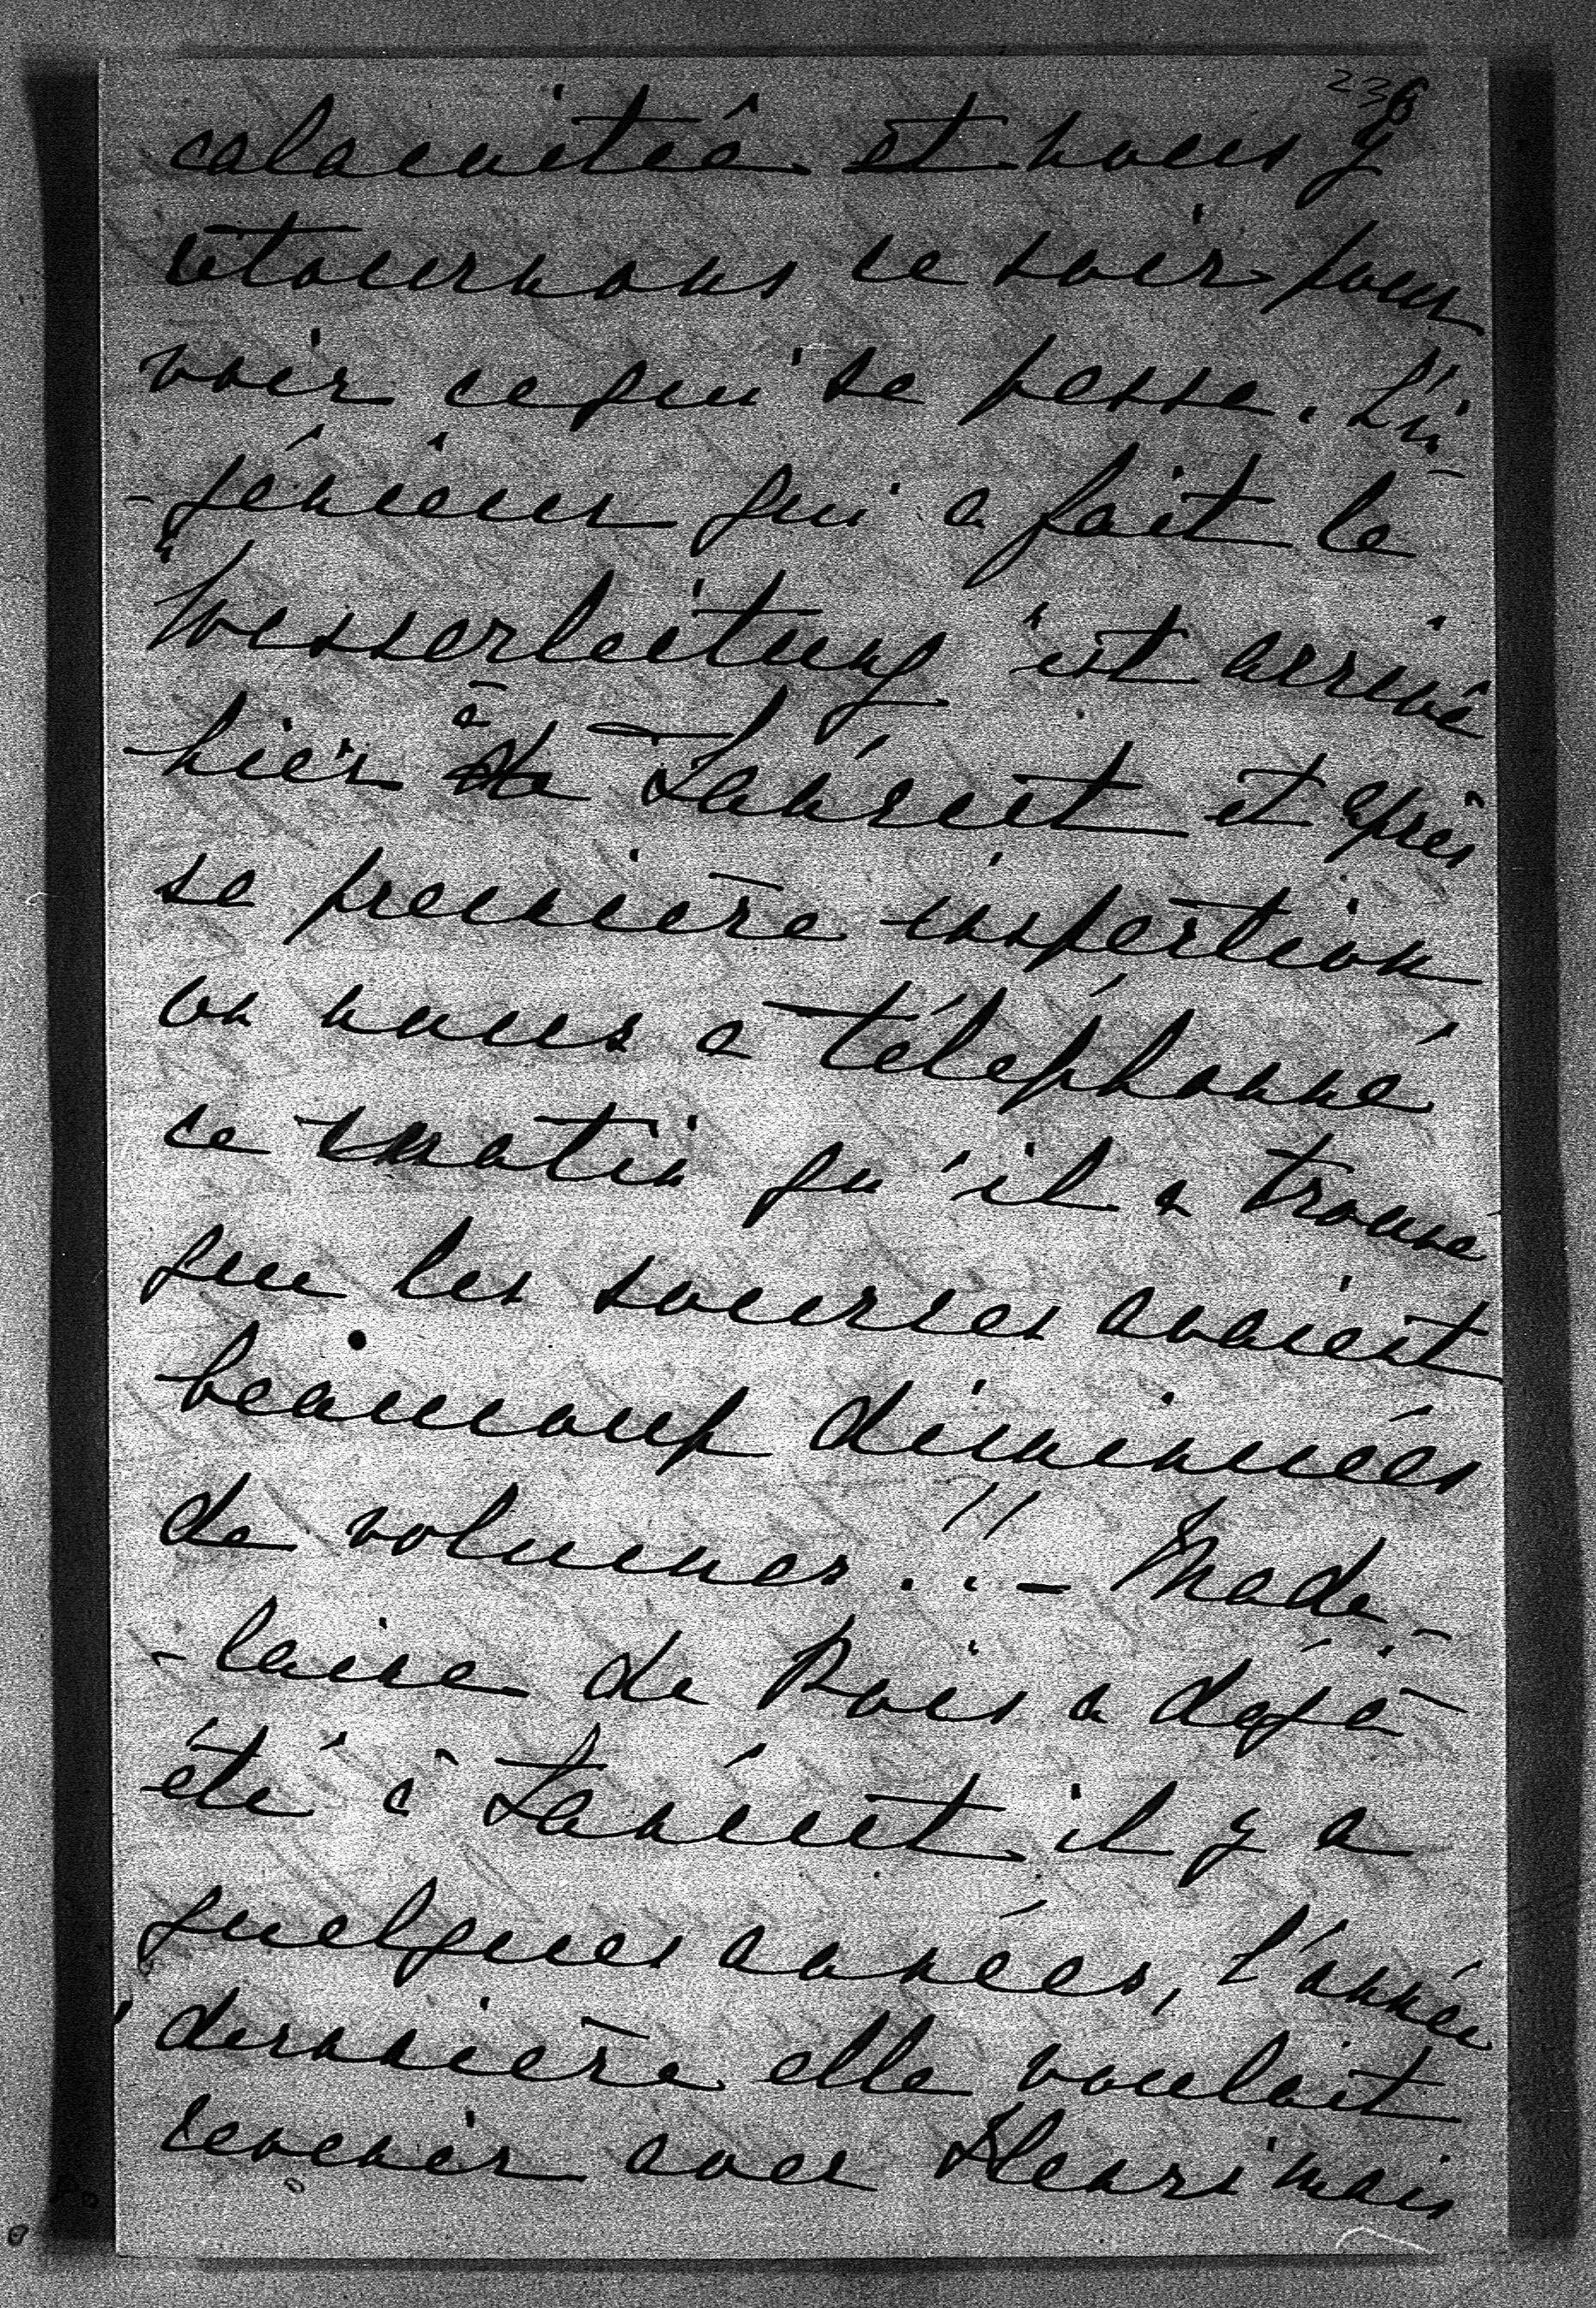 236
calamité et nous y
retournons ce soir pour
voir ce qui se passe. L'in-
-génieur qui a fait la
Wasserleitung est arrivé
hier à de Tanvent et après
sa première inspection
on nous a téléphonné
ce matin qu'il a trouvé
que les sources avaient
beaucoup diminuées
de volumes!! - Made-
-laine de Rois a déjà
été à il y a
quelques années, l'année
dernière elle voulait
revenir avec Henri mais